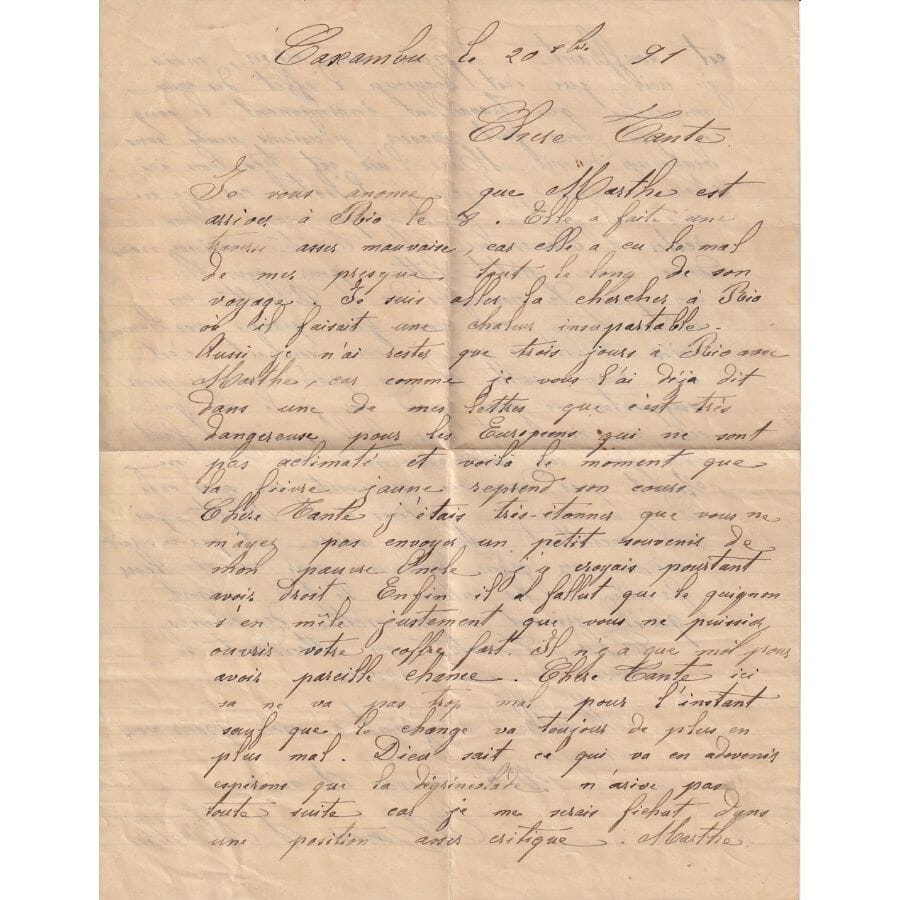 Caxambu le 20 xbre 91
Chere Tante.
Je vous anonce que Marthe est
arriver à Rio le 8. Elle a faite une
traverse asser mauvaise, car elle a eu le mal
de mer presque tout le long de son
voyage. Je suis aller la chercher à Rio
où il faisait une chaleur insuportable.
Aussi je n'ai rester que trois jours à Rio avec
Marthe, car comme je vous l'ai déja dit
dans une de mes lettres que c'est très
dangereuse pour les Européens qui ne sont
pas aclimaté et voilà le moment que
la fièvre jaune reprend son cours.
Chere Tante j'étais très-étonner que vous ne
m'ayez pas envoyer un petit souvenir de
mon pauvre Oncle j'y croyais pourtant
avoir droit. Enfin il a fallut que le guignon
s'en mêle justement que vous ne puissiez
ouvrir votre coffre fort. Il n'y a que moi pour
avoir pareille chance. Chere Tante ici
sa ne va pas trop mal pour l'instant
sauf que le change va toujour de plus en
plus mal. Dieu sait ce qui va en adevenir
espérons que la dégrinculade n'arive pas
toute suite car je me serais fichat dans
une position asser critique. Marthe